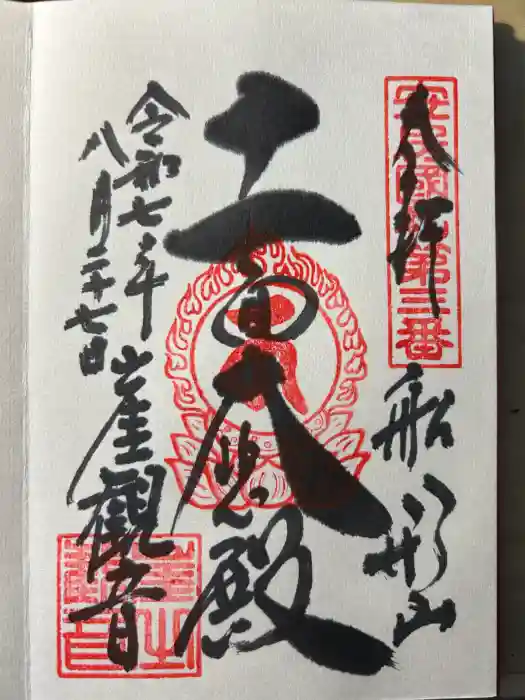 安房國札第三番
奉拝
船形山
十一面大悲殿
崖觀音
令和七年
八月二十七日